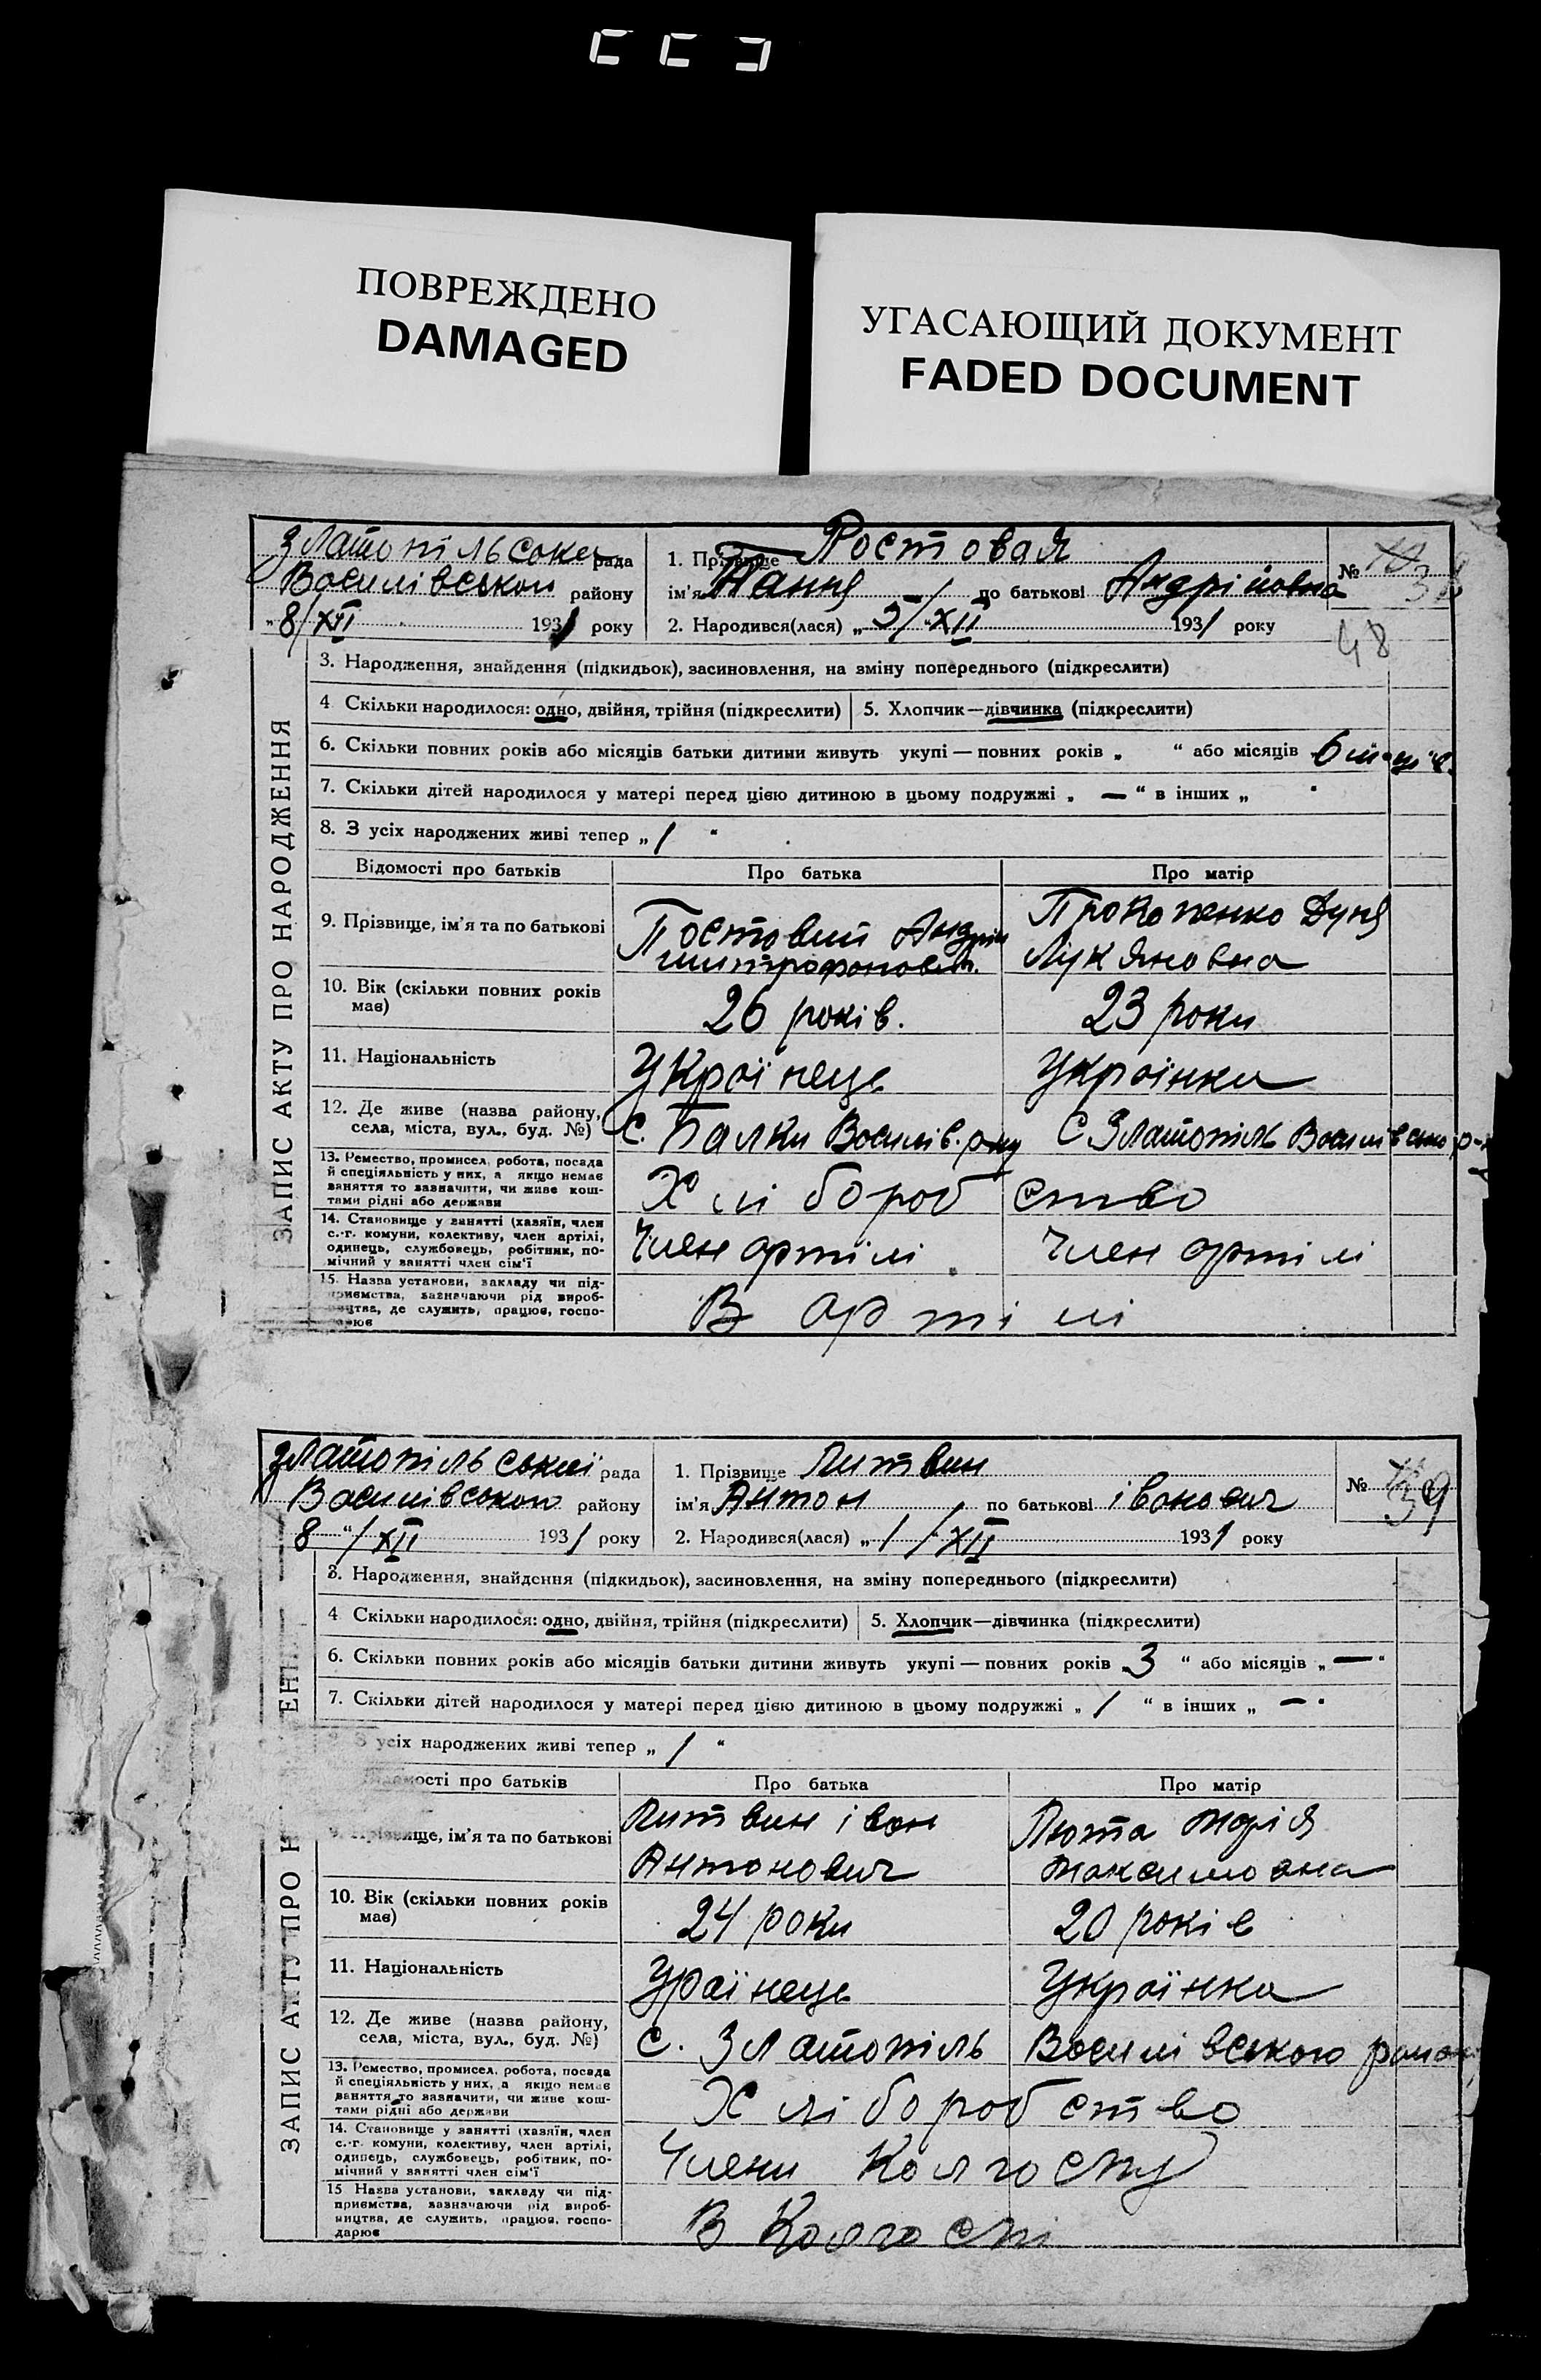 ПОВРЕЖДЕНО
DAMAGED
УГАСАЮЩИЙ ДОКУМЕНТ
FADED DOCUMENT
Златопільська рада
Василівського району
„8/XII 1931 року
1. Прізвище Ростовая
ім'я Ганна по батькові Андрійовна
2. Народився(лася) „5/XII 1931 року
№ 38
48
ЗАПИС АКТУ ПРО НАРОДЖЕННЯ
3. Народження, знайдення (підкидьок), засиновлення, на зміну попереднього (підкреслити)
4 Скільки народилося: одно, двійня, трійня (підкреслити)
5. Хлопчик—дівчинка (підкреслити)
6. Скільки повних років або місяців батьки дитини живуть укупі — повних років „ “ або місяців 6
7. Скільки дітей народилося у матері перед цією дитиною в цьому подружжі „ — “ в інших „ “
8. З усіх народжених живі тепер „ 1 “
Відомості про батьків Про батька Про матір
9. Прізвище, ім'я та по батькові
Постовий Андрій
митрофанович.
Прокопенко Дуня
Лукяновна
10. Вік (скільки повних років має)
26 років.
23 роки
11. Національність
Українець
Українка
12. Де живе (назва району, села, міста, вул., буд. №)
с. Балки Василів. р-ну
С Златопіль Василівсько р-н
13. Ремество, промисел, робота, посада й спеціяльність у них, а якщо немає заняття то зазначити, чи живе коштами рідні або держави
Хліборобство
14. Становище у занятті (хазяїн, член с.-г. комуни, колективу, член артілі, одинець, службовець, робітник, помічний у занятті член сім'ї
Член артілі
Член артілі
15. Назва установи, закладу чи підприємства, зазначаючи рід виробництва, де служить, працює, госпо-
В артілі
Златопільської рада
Василівського району
8 “/XII 1931 року
1. Прізвище Литвин
ім'я Антон по батькові івонович
2. Народився(лася) „1/XII 1931 року
№ 39
ЗАПИС АКТУ ПРО Н ЕНН
3. Народження, знайдення (підкидьок), засиновлення, на зміну попереднього (підкреслити)
4 Скільки народилося: одно, двійня, трійня (підкреслити)
5. Хлопчик—дівчинка (підкреслити)
6. Скільки повних років або місяців батьки дитини живуть укупі — повних років „3 “ або місяців „ — “
7. Скільки дітей народилося у матері перед цією дитиною в цьому подружжі „ 1 “ в інших „ —
З усіх народжених живі тепер „ 1 “
Відомості про батьків Про батька Про матір
9. Прізвище, ім'я та по батькові
Литвин івон
Антонович
Люта Марія
Максимовна
10. Вік (скільки повних років має)
24 роки
20 років
11. Національність
Ураїнець
Українка
12. Де живе (назва району, села, міста, вул., буд. №)
с. Златопіль Василівського району
13. Ремество, промисел, робота, посада й спеціяльність у них, а якщо немає заняття то зазначити, чи живе коштами рідні або держави
Хліборобство
14. Становище у занятті (хазяїн, член с.-г. комуни, колективу, член артілі, одинець, службовець, робітник, помічний у занятті член сім'ї
Члени Колгоспу
15 Назва установи, закладу чи підприємства, зазначаючи рід виробництва, де служить, працює, господарює
В Колгоспі